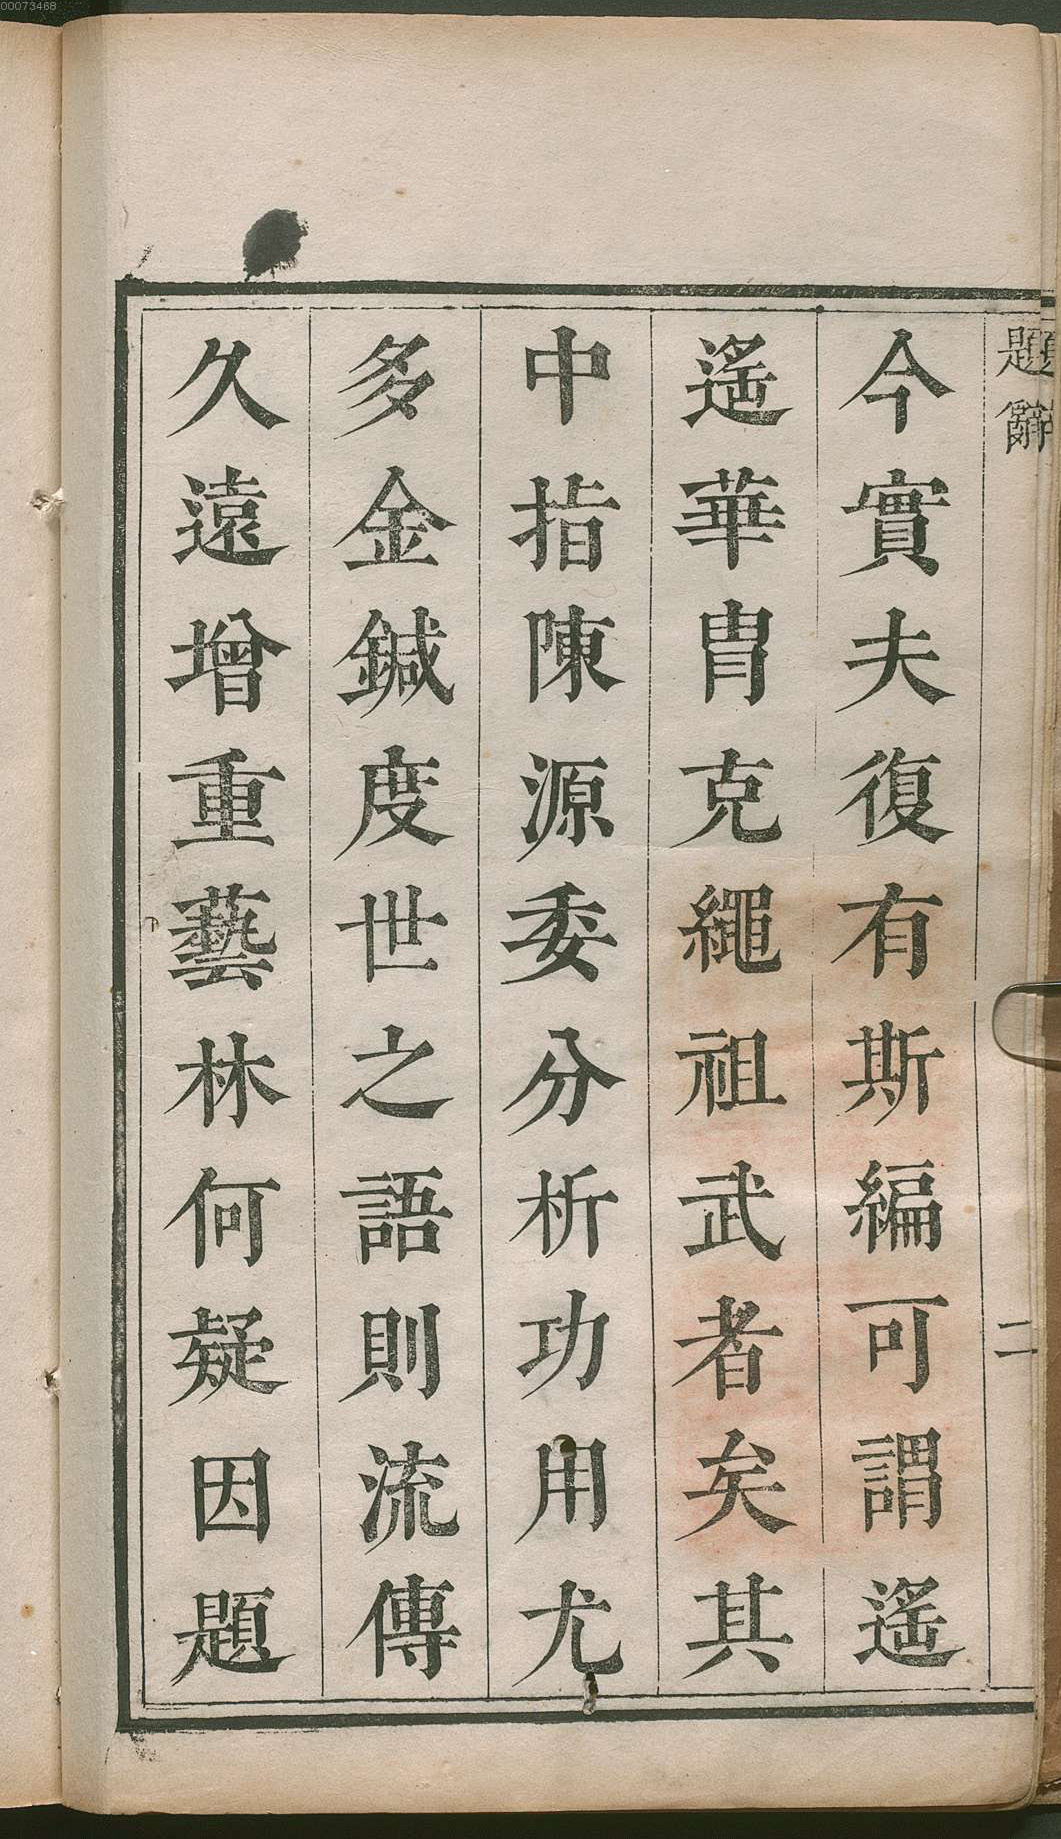 00073468
題辭
二
今實夫復有斯編可謂遙
遙華胄克繩祖武者矣其
中指陳源委分析功用尤
多金鍼度世之語則流傳
久遠增重藝林何疑因題